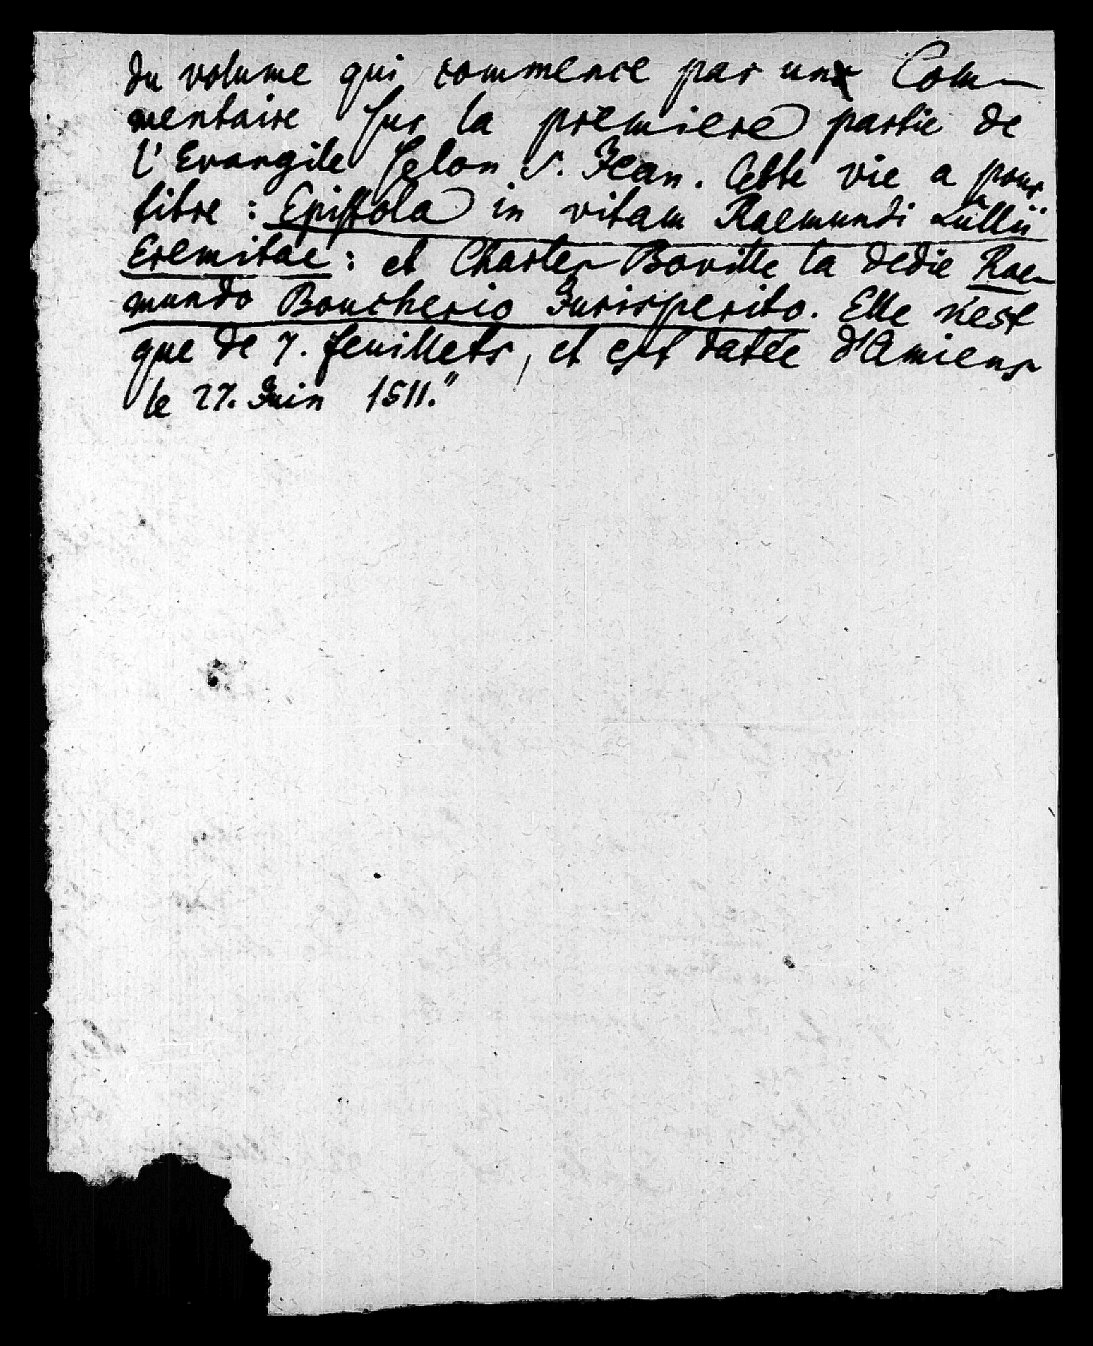 du volume qui commence par un Com-
mentaire sur la premiere partie de
l'Evangile selon S. Jean. Cette vie a pour
titre : Epistola in vitam Raemundi Lullii
Eremitae : et Charles Boville la dedie Rae-
mundo Boucherio Jurisperito. Elle n'est
que de 7. feuillets, et est datée d'Amiens
le 27. Juin 1511."